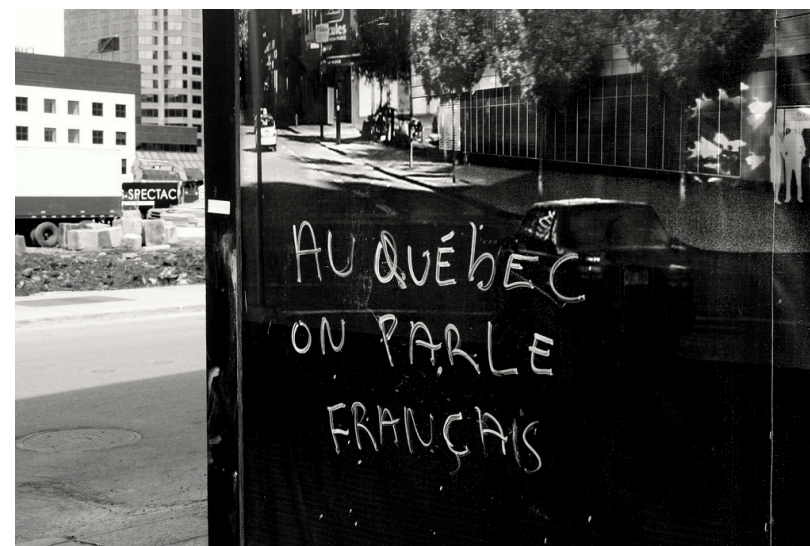 ules
-SPECTAC
AU QUÉbEC
ON PARLE
FRANÇAIS